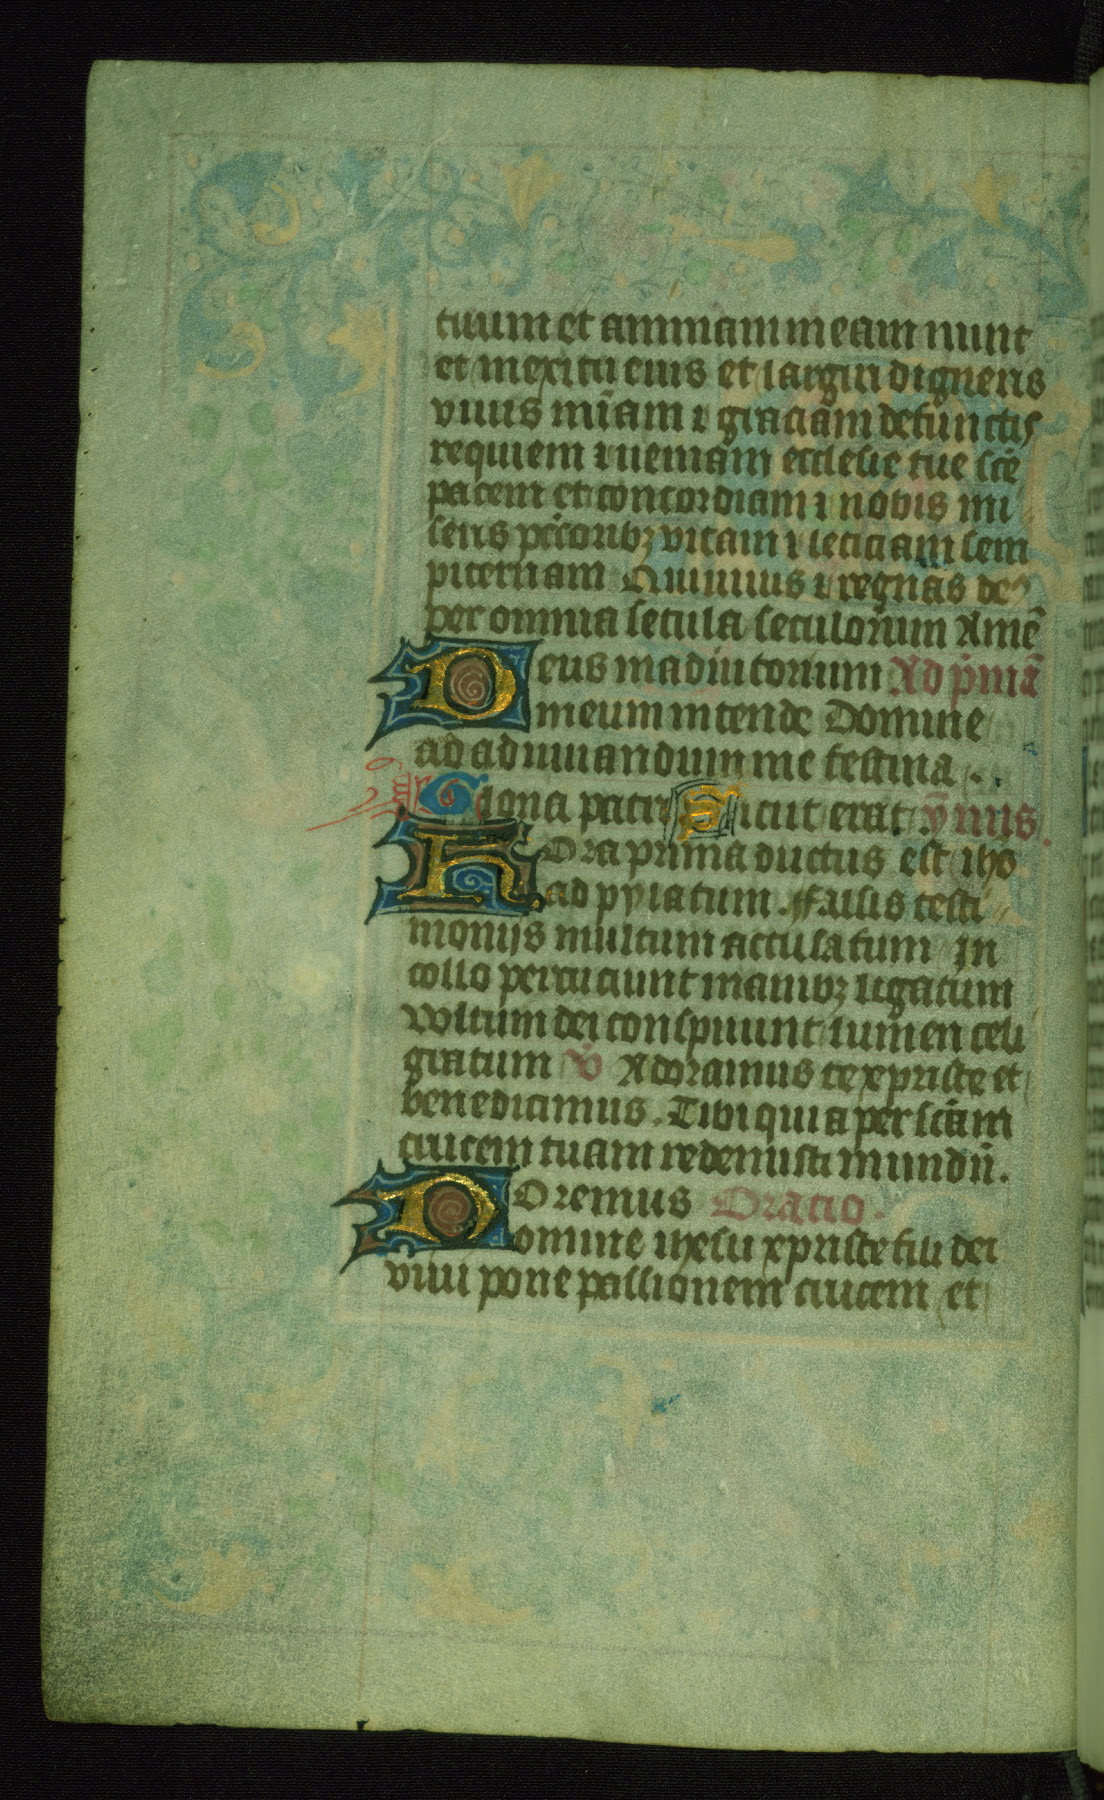 tuum et animam meam nunt
et in exitu eius et largiri digneris
viuis mīam ⁊ graciam defunctis
requiem ⁊ ueniam ecclesie tue scē
pacem et concordiam ⁊ nobis mi
seris pc̄corib3 vitam ⁊ leticiam sem
piternam Qui uiuis ⁊ regnas de9
per omnia secula seculorum Amē
Deus in adiutorium Ad p̄mā
meum intende Domine
ad adiuuandum me festina.
Gloria patri Sicut erat ȳmus.
Hora prima ductus est ih̄o
ad pylatum. Falsis testi
monijs multum accusatum In
collo percuciunt manib3 ligatum
Vvltum dei conspuunt lumen celi
gratum v̄ Adoramus te xpriste et
benedicimus. Tibi quia per sc̄am
crucem tuam redemisti mundū.
Oremus Oracio.
Domine ihesu xpriste fili dei
viui pone passionem crucem et